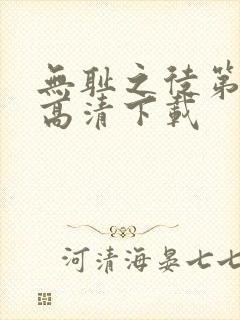 無耻之徒第
高清下載
河清海晏七七